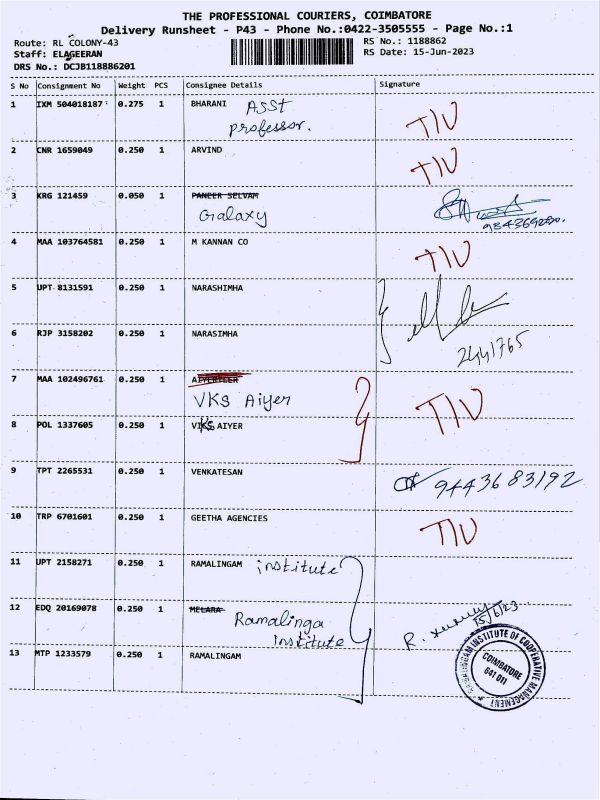 THE PROFESSIONAL COURIERS, COIMBATORE
Delivery Runsheet - P43 - Phone No.:0422-3505555 - Page No.:1
Route: RL COLONY-43
RS No.: 1188862
Staff: ELAGEERAN
RS Date: 15-Jun-2023
DRS No.: DCJB118886201
S No Consignment No Weight PCS Consignee Details Signature
1 IXM 504018187 0.275 1 BHARANI Asst
professor. TIU
2 CNR 1659049 0.250 1 ARVIND TIU
3 KRG 121459 0.050 1 PANEER SELVAM
Galaxy
4 MAA 103764581 0.250 1 M KANNAN CO TIU
5 UPT 8131591 0.250 1 NARASHIMHA
6 RJP 3158202 0.250 1 NARASIMHA
2441765
7 MAA 102496761 0.250 1
VKS Aiyer TIU
8 POL 1337605 0.250 1 VKS AIYER
9 TPT 2265531 0.250 1 VENKATESAN 9443683192
10 TRP 6701601 0.250 1 GEETHA AGENCIES TIU
11 UPT 2158271 0.250 1 RAMALINGAM institute
12 EDQ 20169078 0.250 1 MELARA
Ramalinga
Institute
15/6/23
13 MTP 1233579 0.250 1 RAMALINGAM
RAMALINGAM INSTITUTE OF COOPERATIVE MANAGEMENT
COIMBATORE
641 011